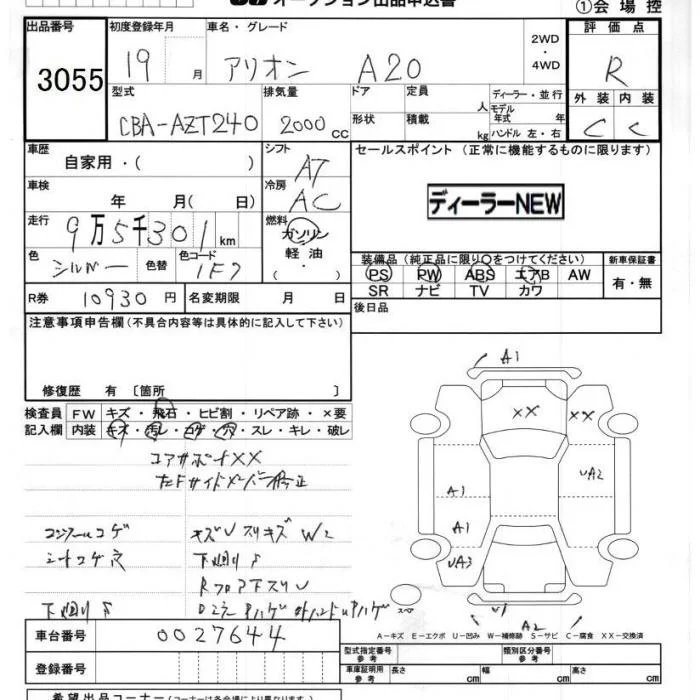 オークション出品申込書
①会場控
出品番号
3055
初度登録年月
19 月
車名・グレード
アリオン A20
2WD
・
4WD
評価点
R
型式
CBA-AZT240
排気量
2000 cc
ドア
形状
定員 人
積載 kg
ディーラー・並行
モデル年式 年
ハンドル 左・右
外装 内装
C C
車歴
自家用・( )
シフト
AT
セールスポイント (正常に機能するものに限ります)
車検
年 月( 日)
冷房
AC
ディーラーNEW
走行
9万5千301km
燃料
ガソリン
軽油
・( )
色
シルバー
色替
色コード
1F7
装備品 (純正品に限り○をつけてください)
新車保証書
PS PW ABS エアB AW
SR ナビ TV カワ
有・無
R券 10930円
名変期限 月 日
後日品
注意事項申告欄 (不具合内容等は具体的に記入して下さい)
修復歴 有 〔箇所 〕
検査員
記入欄
FW キズ・飛石・ヒビ割・リペア跡・×要
内装 キズ・汚レ・コゲ・穴・スレ・キレ・破レ
コアサポートXX
コンソールコゲ
シートコゲ穴
キズU スリキズ W2
下廻りS
RフロアスリU
下廻りS
A1
XX
XX
UA2
A1
A1
UA3
スペア
U1
A2
A-キズ E-エクボ U-凹み W-補修跡 S-サビ C-腐食 XX-交換済
車台番号
0027644
登録番号
型式指定番号
参考
類別区分番号
参考
車庫証明用
参考
長さ cm
幅 cm
高さ cm
希望出品コーナー (コーナーは各会場により異なります)